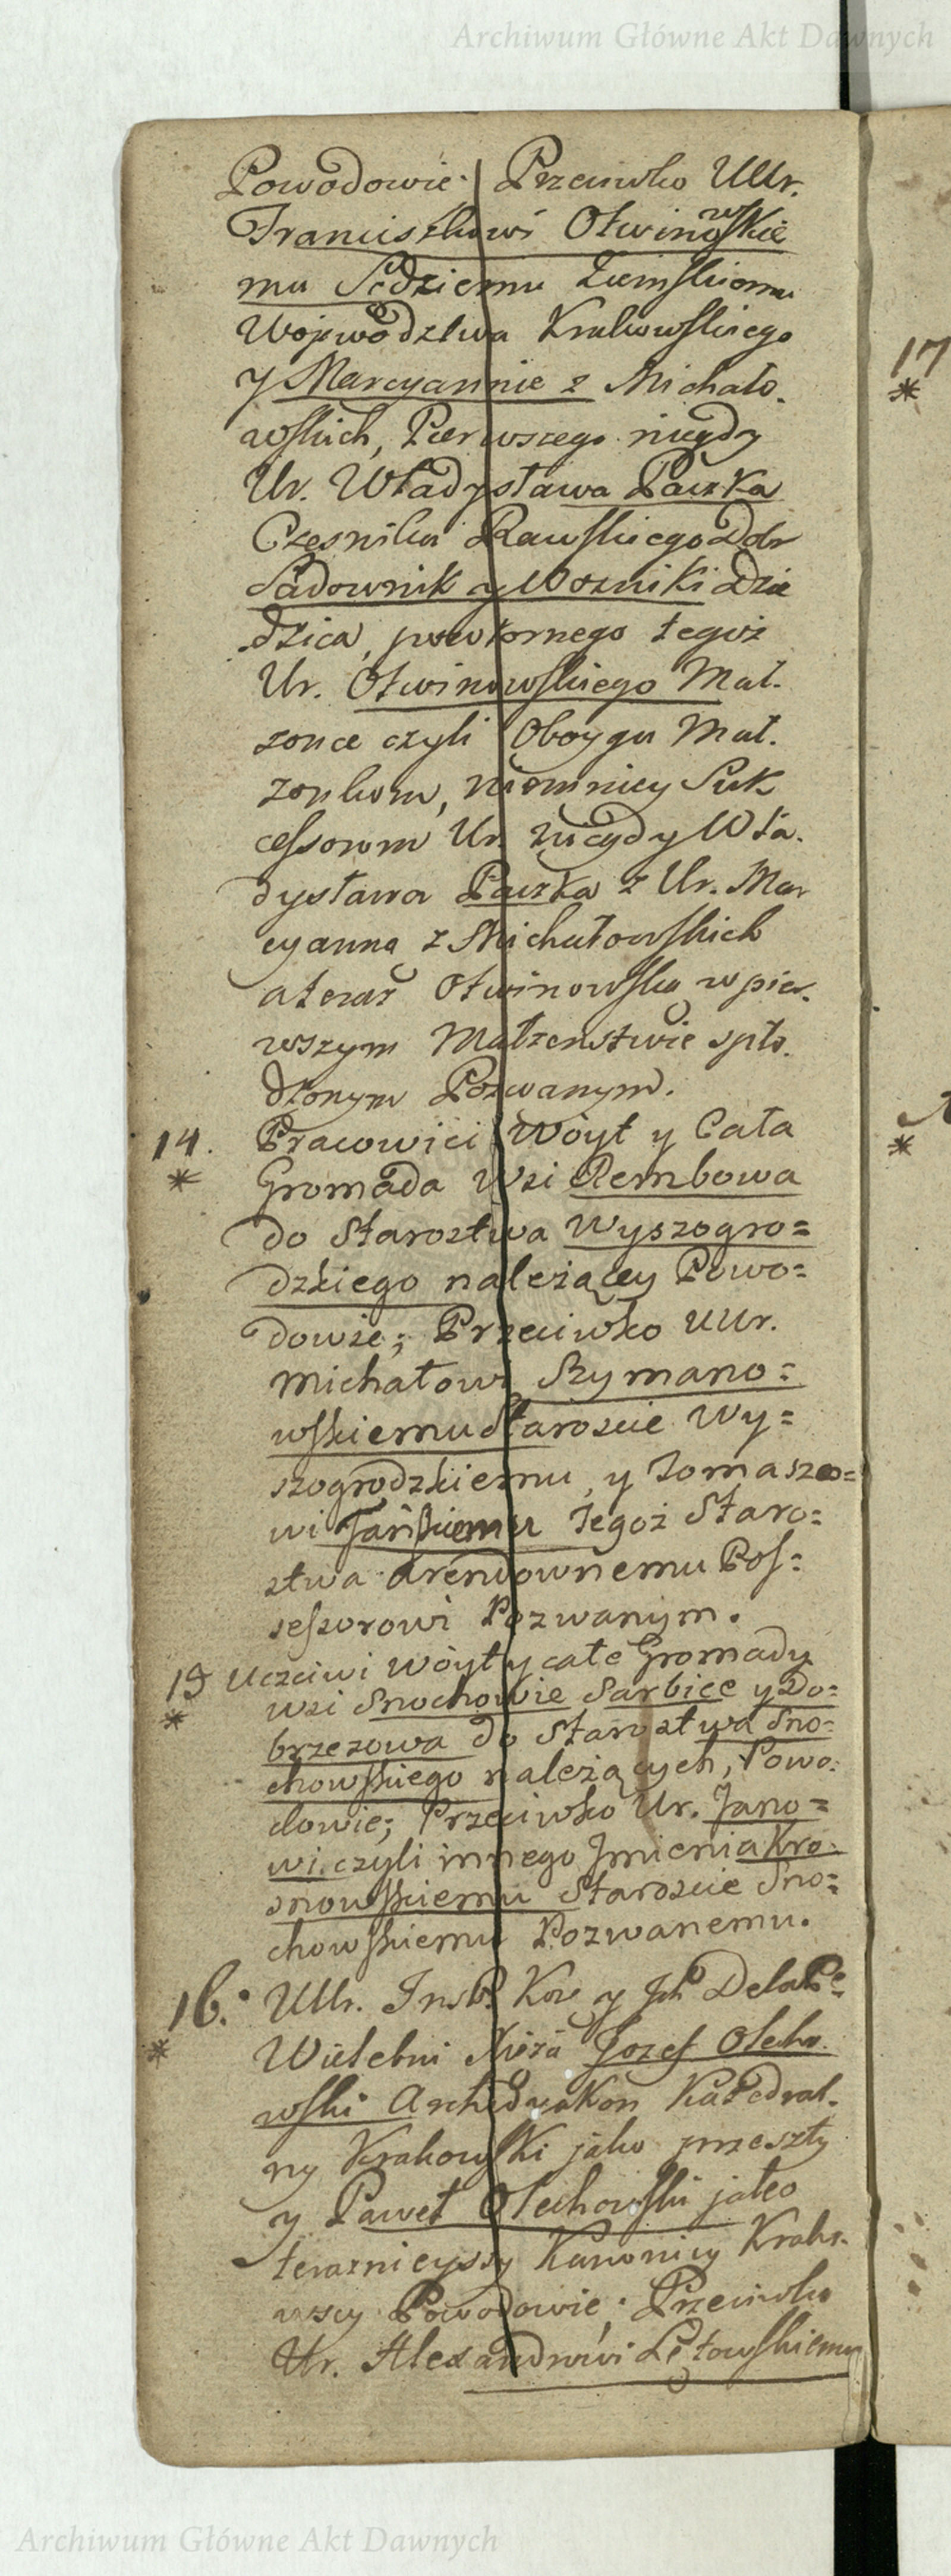 Archiwum Główne Akt Dawnych
Powodowie. Przeciwko UUr.
Franciszkowi Otwinowskie
mu Sędziemu Ziemskiemu
Woiewodztwa Krakowskiego
y Maryannie z Michało.
wskich, Pierwszego niegdy
Ur. Władysława Paczka
Czesnika Rawskiego Dobr
Sadownik y Wozniki Dzie
dzica, powtornego tegoż
Ur. Otwinowskiego Mał.
zonce czyli Oboyga Mał.
zonkom, niemniey Suk
cessorom Ur. niegdy Wła.
dysława Paczka z Ur. Mar
cyanną z Michałowskich
a teraz Otwinowską w pier.
wszym Małzenstwie spło.
dzonym Pozwanym.
14. Pracowici Woyt y Cała
* Gromada Wsi Rembowa
do Starostwa Wyszogro=
dzkiego należącey Powo=
dowie; Przeciwko UUr.
Michałowi Rymano=
wskiemu Staroscie Wy=
szogrodzkiemu, y Tomaszo=
wi Tańskiemu tegoż Staro=
stwa Arendownemu Pos=
sessorowi Pozwanym.
15 Uczciwi Woyt y całe Gromady
* wsi Snochowie Sarbice y Do=
brzeszowa do Starostwa Sno=
chowskiego należących, Powo=
dowie; Przeciwko Ur. Jano=
wi czyli innego Jmienia Kro=
snowskiemu Staroscie Sno=
chowskiemu Pozwanemu.
17
*
*
16. UUr. Inst. Kor y Delat.
* Wielebni Xięża Jozef Olecho.
wski Archidyakon Katedral.
ny Krakowski jako przeszły
y Paweł Olechowski jako
teraznieyszy Kanonicy Krako.
wscy Powodowie; Przeciwko
Ur. Alexandrowi Łętowskiemu
Archiwum Główne Akt Dawnych